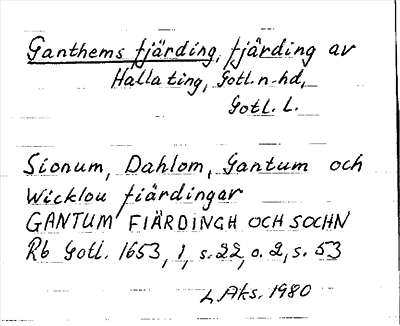 Ganthems fjärding, fjärding av
Halla ting, Gotl. n. hd,
Gotl. L.
Sionum, Dahlom, Gantum och
Wicklou fiärdingar
GANTUM FIÄRDINGH OCH SOCHN
Rb Gotl. 1653, 1, s. 22, o. 2, s. 53
L Aks. 1980